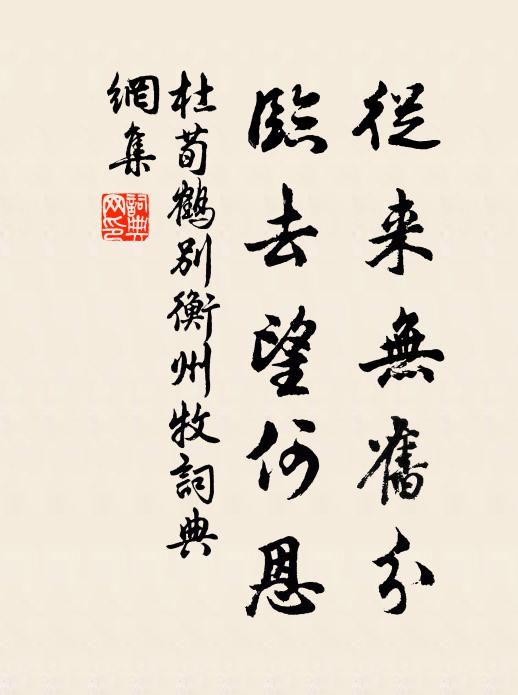 從来無舊分
臨去望何恩
杜荀鶴别衡州牧詞典
網集
詞典
网印